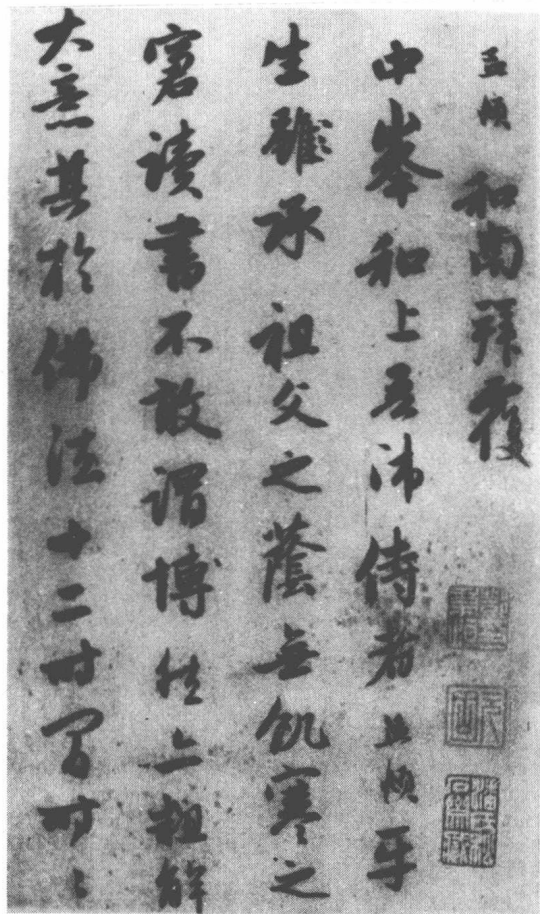 孟頫和南拜覆
中峯和上吾師侍者孟頫平
生雖承祖父之蔭無飢寒之
窘讀書不敢謂博然亦粗解
大意其於佛法十二時間時時